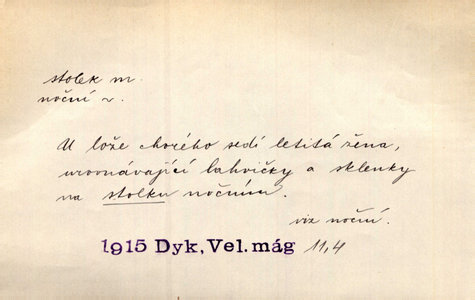 stolek m.
noční 2.
U lože chorého sedí letitá žena,
urovnávající lahvičky a sklenky
na stolku nočním.
viz noční.
1915 Dyk, Vel. mág 11,4